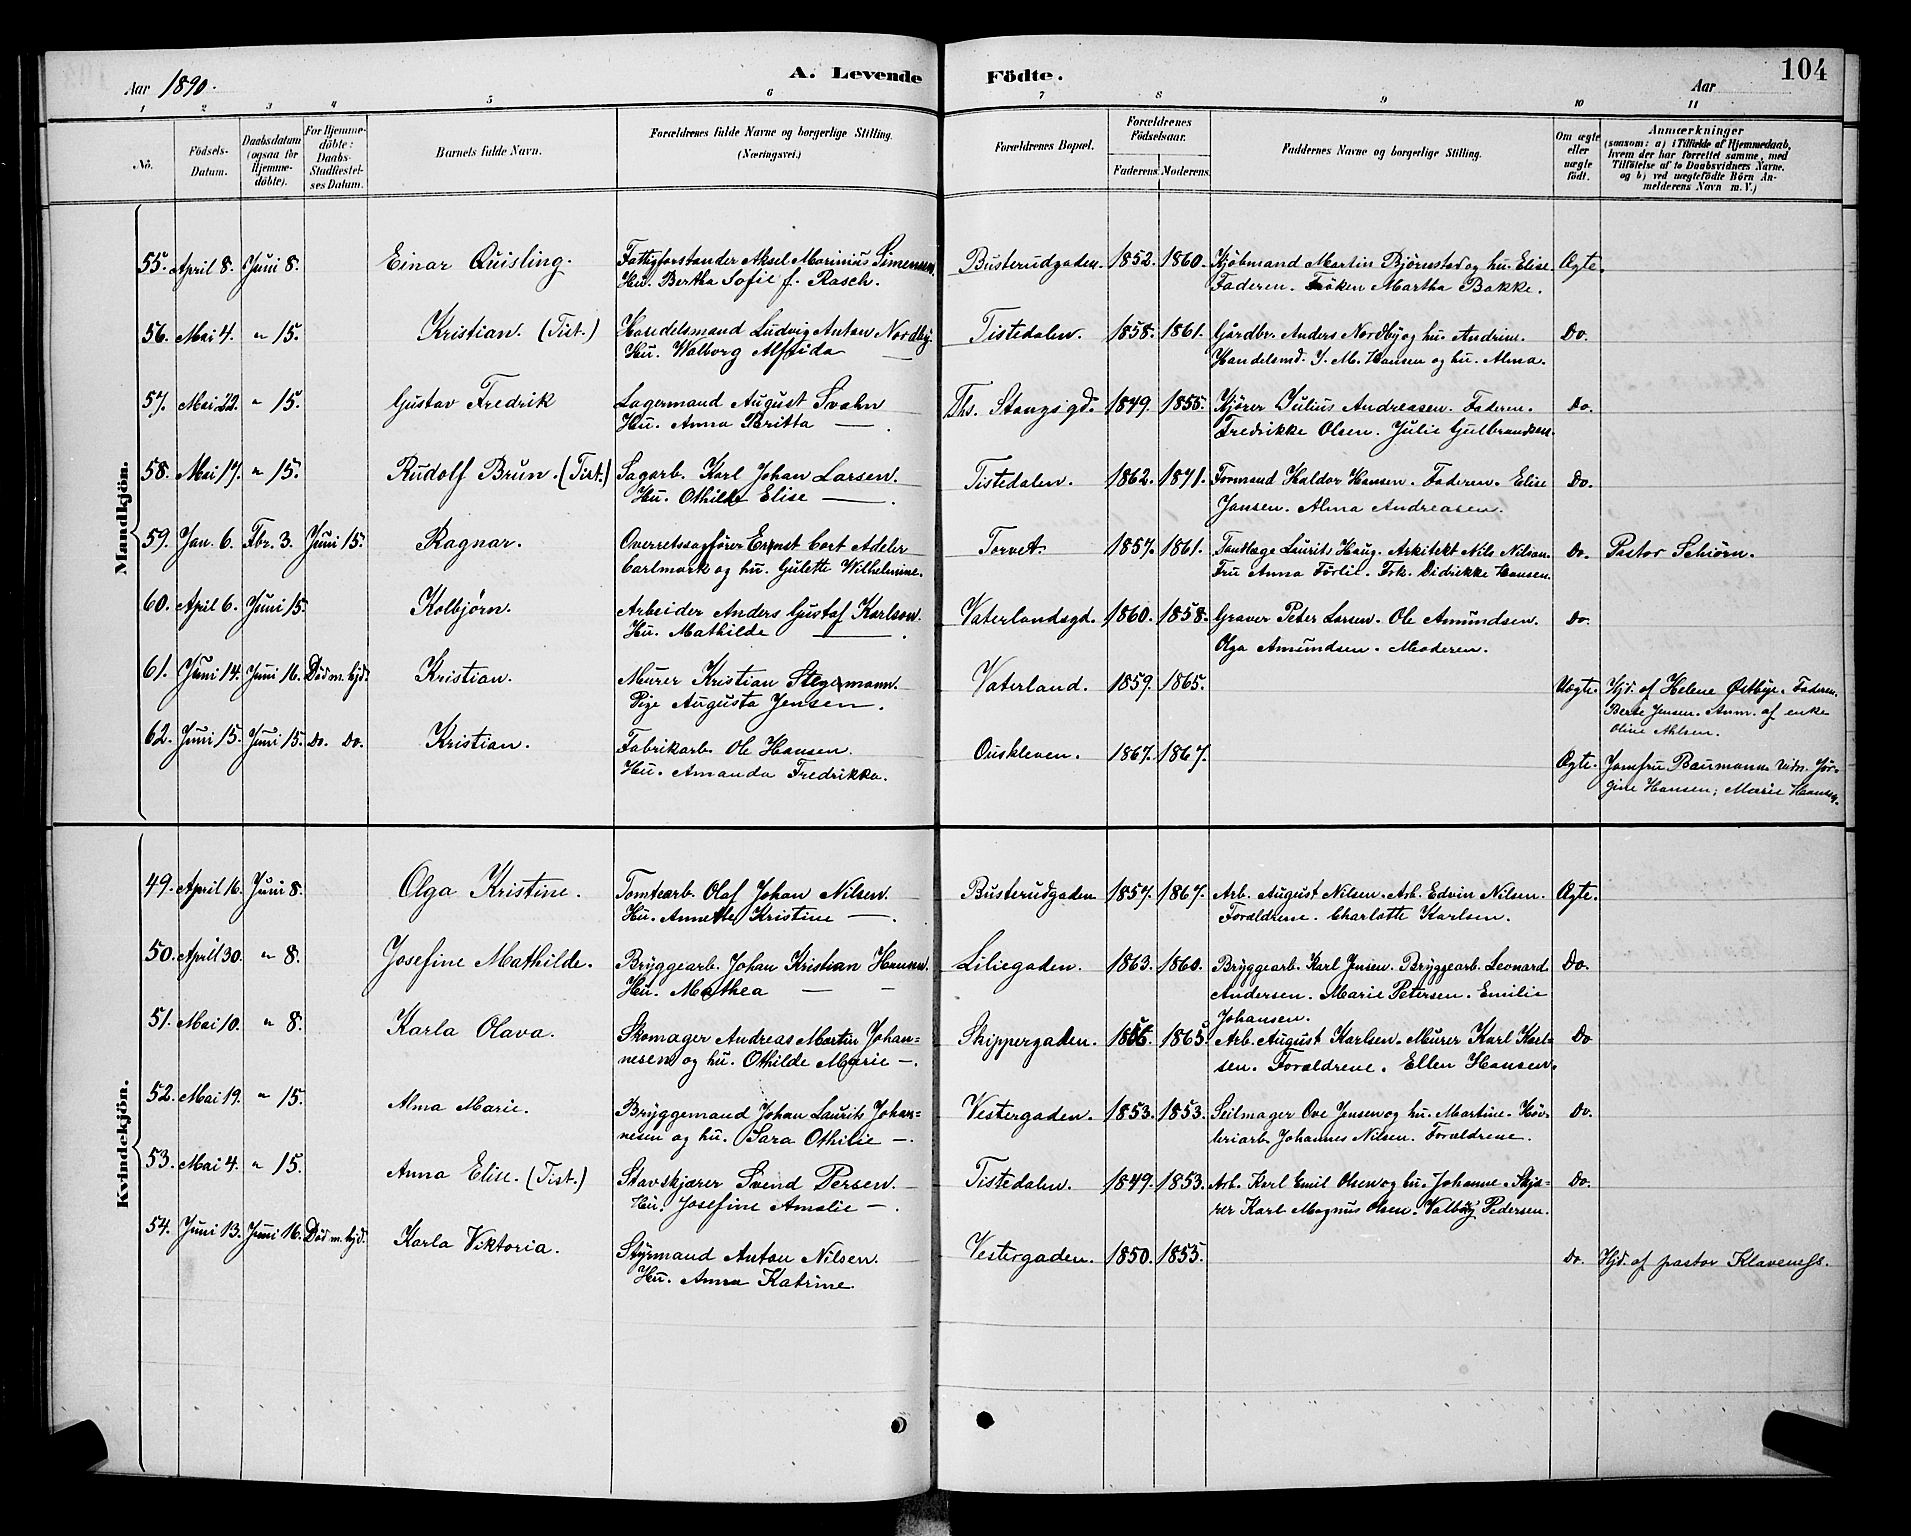 Aar 1890.
A. Levende Födte.
Aar
104
1 2 3 4 5 6 7 8 9 10 11
No.
Födsels-Datum.
Daabsdatum (ogsaa for Hjemme-döbte).
For Hjemme-döbte: Daabs-Stadfæstel-ses Datum.
Barnets fulde Navn.
Forældrenes fulde Navne og borgerlige Stilling.
(Næringsvei.)
Forældrenes Bopæl.
Forældrenes Födselsaar.
Faderens Moderens
Faddernes Navne og borgerlige Stilling.
Om ægte eller uægte födt.
Anmærkninger
(saasom: a) i Tilfælde af Hjemmedaab, hvem der har forrettet samme, med Tilföielse af to Daabsvidners Navne. og b) ved uægtefödte Börn An-melderens Navn m. V.)
Mandkjön.
55. April 8. Juni 8. Einar Quisling. Fattigforstander Aksel Marinius Simensen. Busterudgaden. 1852. 1860. Kjøbmand Martin Bjørnstad og hu. Elise. Ægte.
Hu. Bertha Sofie f. Rasch. Faderen. Frøken Martha Bakke.
56. Mai 4. " 15. Kristian. (Tist.) Handelsmand Ludvig Anton Nordby. Tistedalen. 1858. 1861. Gårdbr. Anders Nordby og hu. Andrine. Do.
Hu. Walborg Alfrida — Handelsmd. J. M. Hansen og hu. Alma.
57. Mai 22. " 15. Gustav Fredrik Lagermand August Svahn Ths. Stangsgd. 1849. 1855. Kjører Julius Andreasen. Faderen. Do.
Hu. Anna Britta —. Fredrikke Olsen. Julie Gulbrandsen.
58. Mai 17. " 15. Rudolf Brun. (Tist.) Sagarb. Karl Johan Larsen. Tistedalen. 1862. 1871. Formand Haldor Hansen. Faderen. Elise Do.
Hu. Othilde Elise —. Jansen. Alma Andreasen.
59. Jan. 6. Fbr. 3. Juni 15. Ragnar. Overretssagfører Ernst Cort Adeler Torvet. 1857. 1861. Tandlæge Laurits Haug. Arkitekt Nils Nilsen. Do. Pastor Schiørn.
Carlmark og hu. Gulette Wilhelmine. Fru Anna Förlie. Frk. Didrikke Hansen.
60. April 6. Juni 15. Kolbjørn. Arbeider Anders Gustaf Karlson. Vaterlandsgd. 1860. 1858. Graver Peter Larsen. Ole Amundsen. Do.
Hu. Mathilde —. Olga Amundsen. Moderen.
61. Juni 14. Juni 16. Död m. hjd. Kristian. Murer Kristian Stegemann. Vaterland. 1859. 1865. Uægte. Hjd. af Helene Østbye. Faderen.
Pige Augusta Jensen. Berte Jensen. Anm. af enke
Oline Ahlsen.
62. Juni 15. Juni 15. Do. Do. Kristian. Fabrikarb. Ole Hansen. Ouskleven. 1867. 1867.
Hu. Amanda Fredrikka. Ægte. Jomfru Baumann. Vidn. Jör-
gine Hansen; Marie Hansen.
Kvindekjön.
49. April 16. Juni 8. Olga Kristine. Tomtearb. Olaf Johan Nilsen. Busterudgaden 1857. 1867. Arb. August Nilsen. Arb. Edvin Nilsen. Ægte.
Hu. Annette Kristine —. Forældrene. Charlotte Karlsen.
50. April 30. " 8. Josefine Mathilde. Bryggearb. Johan Kristian Hansen. Liliegaden. 1863. 1860. Bryggearb. Karl Jensen. Bryggearb. Leonard Do.
Hu. Mathea — — Andersen. Marie Petersen. Emilie
Johansen.
51. Mai 10. " 8. Karla Olava. Skomager Andreas Martin Johan= Skippergaden. 1865. Arb. August Karlsen. Murer Karl Karl= Do
nesen og hu. Othilde Marie —. sen. Forældrene. Ellen Hansen.
52. Mai 19. " 15. Alma Marie. Bryggemand Johan Laurits Johan= Vestergaden. 1853. 1853. Seilmager Ove Jensen og hu. Martine. Høv- Do.
nesen og hu. Sara Othilie —. leriarb. Johannes Nilsen. Forældrene.
53. Mai 4. " 15. Anna Elise. (Tist.) Stavskjærer Svend Persen. Tistedalen. 1849. 1853. Arb. Karl Emil Olsen og hu. Johanne. Skjæ- Do.
Hu. Josefine Amalie —. rer Karl Magnus Olsen. Valborg Pedersen.
54. Juni 13. Juni 16. Död m. hjd. Karla Viktoria. Styrmand Anton Nilsen. Vestergaden. 1850. 1855. Do. Hjd. af pastor Klaveness.
Hu. Anna Katrine.